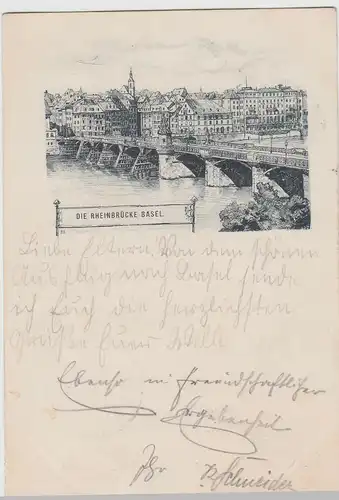 DIE RHEINBRÜCKE BASEL.
Liebe Eltern. Von dem schönen
Ausflug nach Basel sende
ich Euch die herzlichsten
Grüsse Euer Willi
Ebenso in freundschaftlicher
Ergebenheit
Ihr R. Schneider